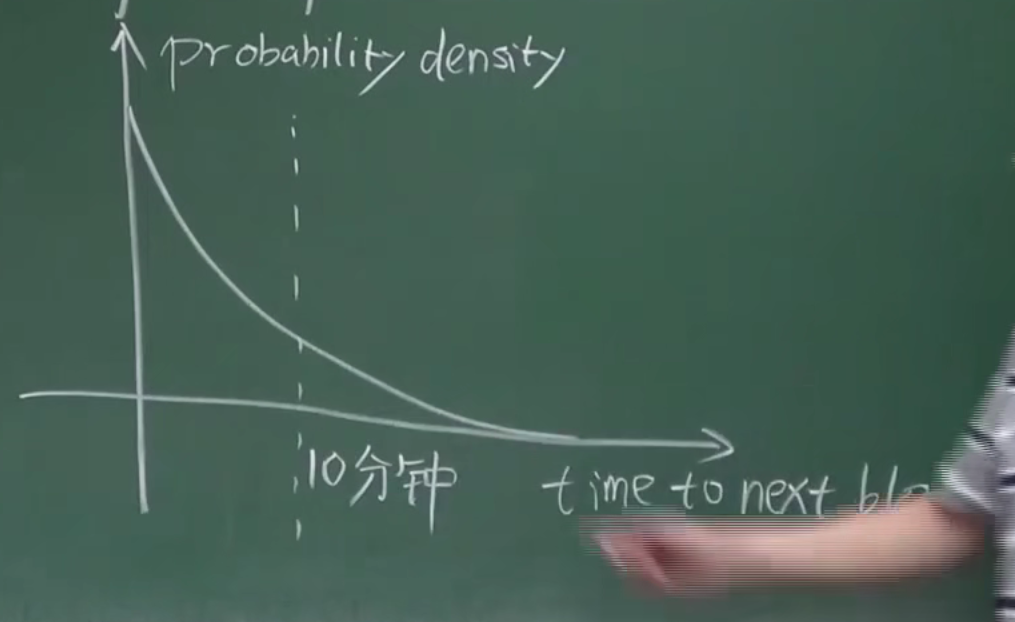 probability density
10分钟
time to next